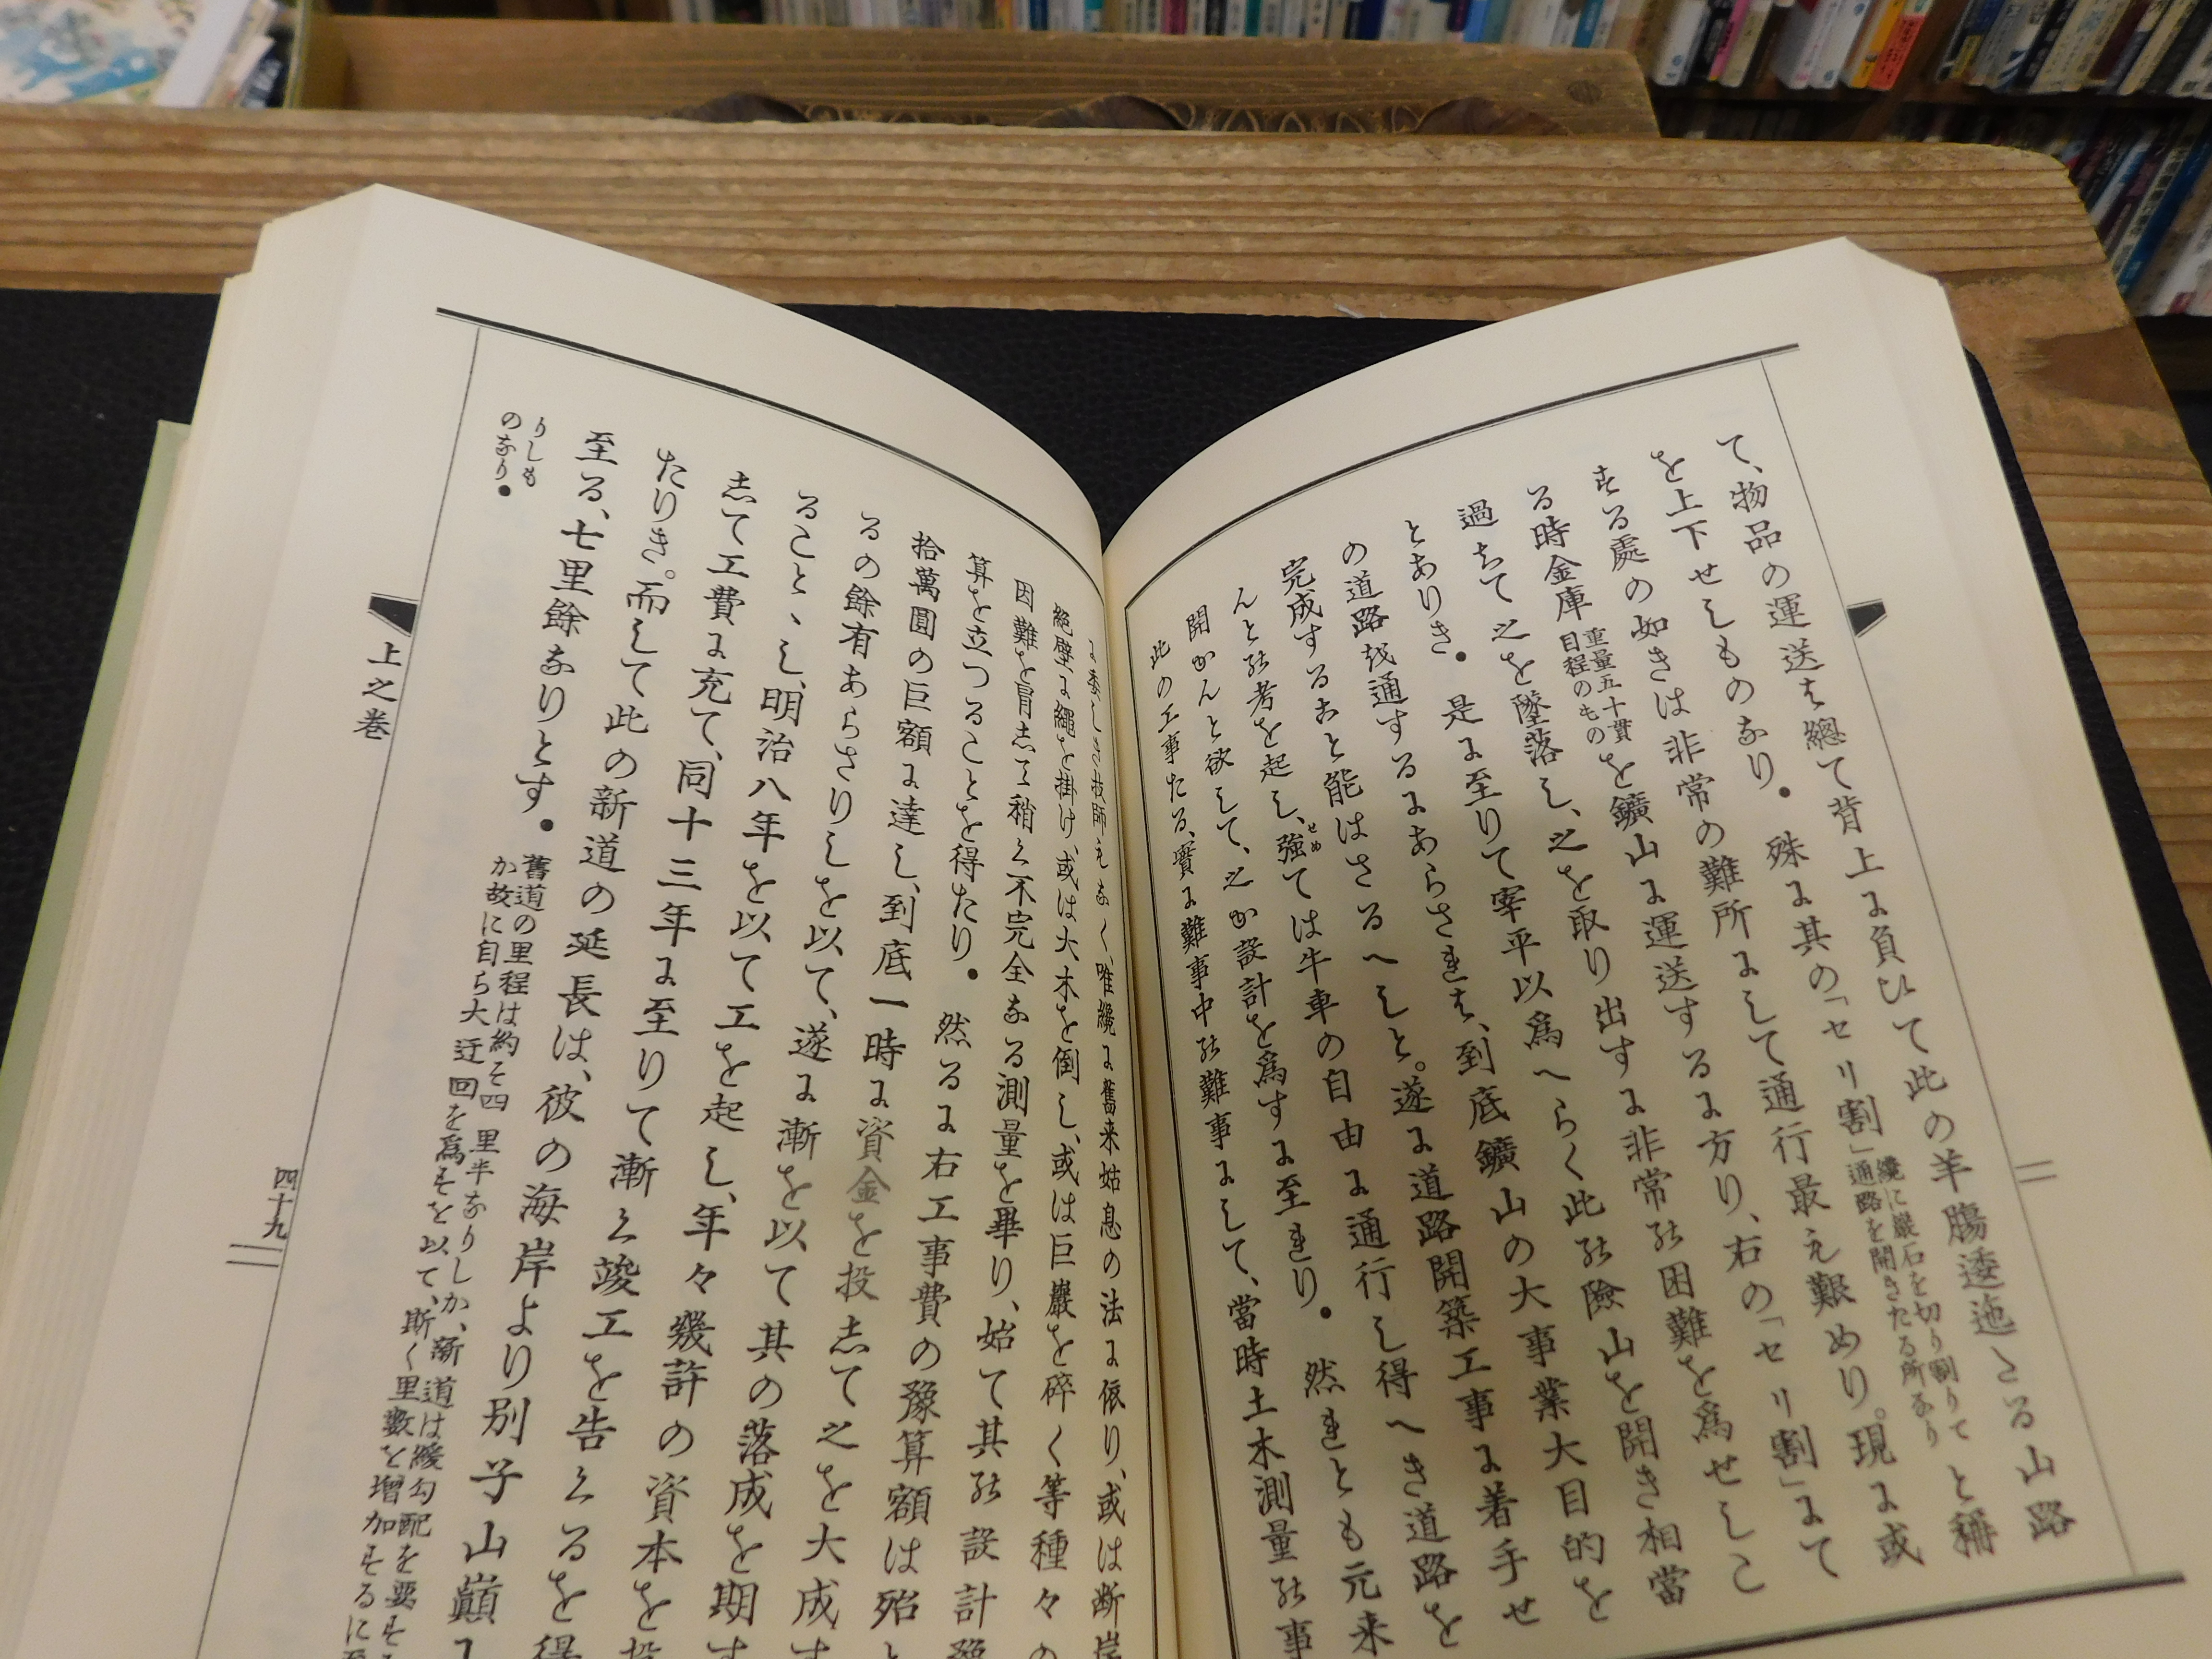 て、物品の運送は總て背上に負ひて此の羊膓逶迤たる山路
を上下せしものなり・殊に其の「セリ割」纔に巖石を切り割りて通路を開きたる所なりと稱
する處の如きは非常の難所にして通行最も艱めり。現に或
る時金庫重量五十貫目程のものを鑛山に運送するに方り、右の「セリ割」にて
過ちて之を墜落し、之を取り出すに非常の困難を爲せしこ
とありき・是に至りて宰平以爲へらく此の險山を開き相當
の道路を通するにあらされは、到底鑛山の大事業大目的を
完成すること能はさるへしと。遂に道路開築工事に着手せ
んとの考を起し、強ては牛車の自由に通行し得へき道路を
せめ
開かんと欲して、之か設計を爲すに至れり・然れとも元来
此の工事たる、實に難事中の難事にして、當時土木測量の事
に委しき技師もなく、唯纔に舊来姑息の法に依り、或は断岸
絶壁に繩を掛け、或は大木を倒し、或は巨巖を碎く等種々の
困難を冒して稍く不完全なる測量を畢り、始て其の設計
算を立つることを得たり・然るに右工事費の豫算額は殆
拾萬圓の巨額に達し、到底一時に資金を投して之を大成す
るの餘有あらさりしを以て、遂に漸を以て其の落成を期す
ることゝし、明治八年を以て工を起し、年々幾許の資本を
して工費に充て、同十三年に至りて漸く竣工を告くるを得
たりき。而して此の新道の延長は、彼の海岸より別子山巓
至る、七里餘なりとす・舊道の里程は約そ四里半なりしか、新道は緩勾配を要する
か故に自ら大迂回を爲すを以て、斯く里數を増加するに至
りしも
のなり・
上之巻
四十九